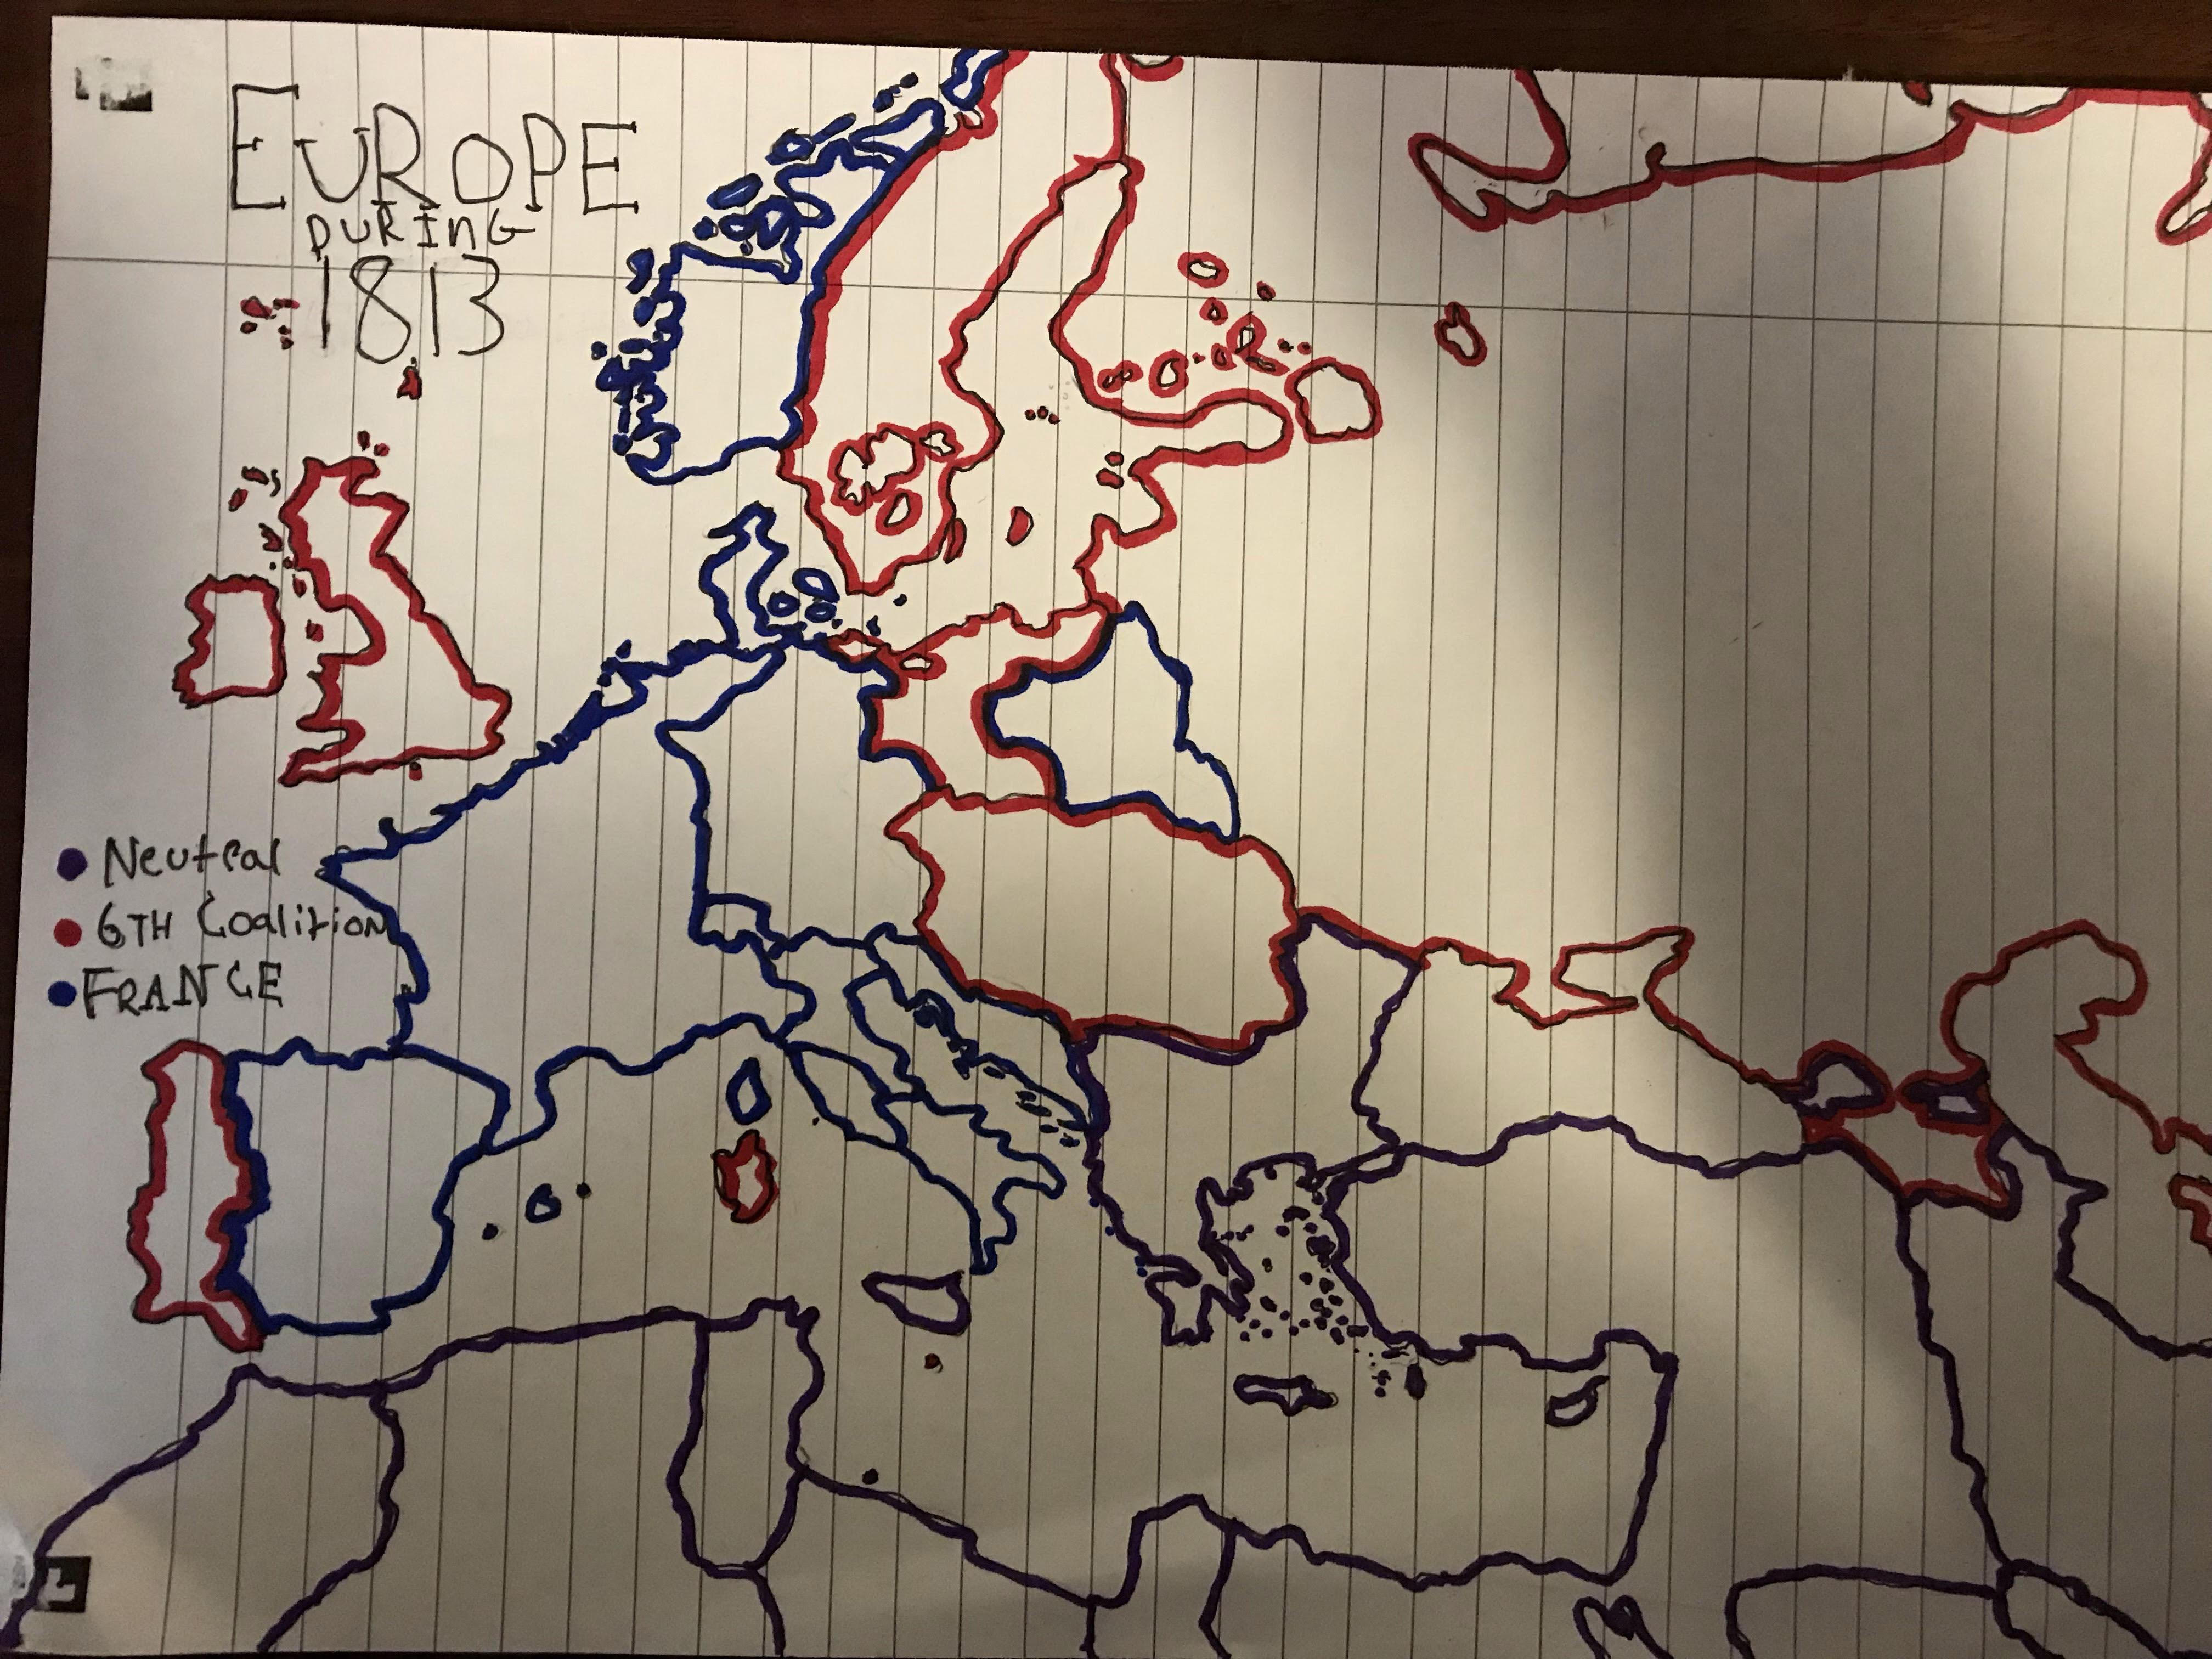 EUROPE
DURING
1813
Neutral
6TH Coalition
FRANCE